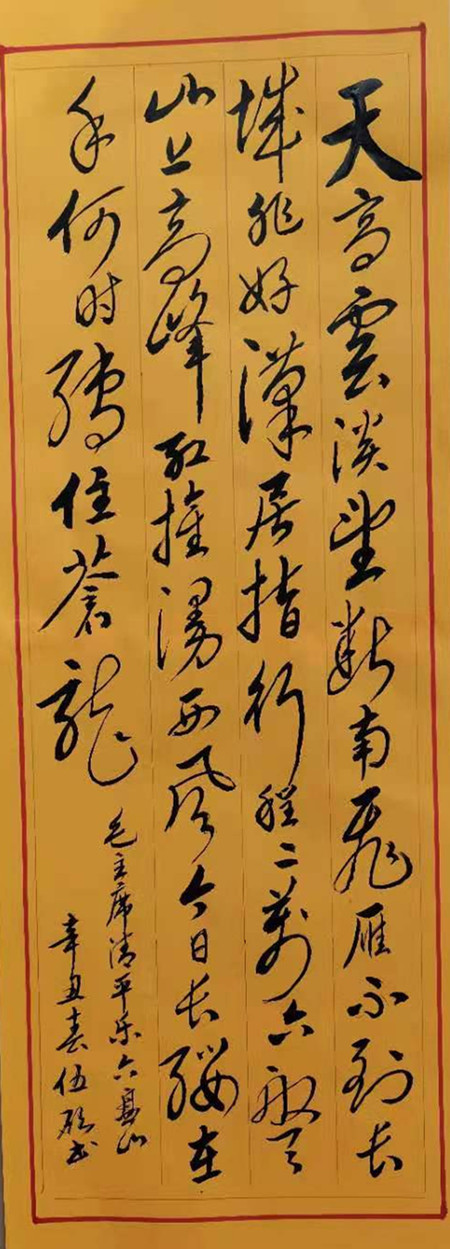 天高雲淡望斷南飛雁不到长
城非好漢屈指行程二萬六盤
山上高峰红旗漫西风今日长缨在
手何时缚住蒼龍
毛主席清平乐六盘山
辛丑春伍书